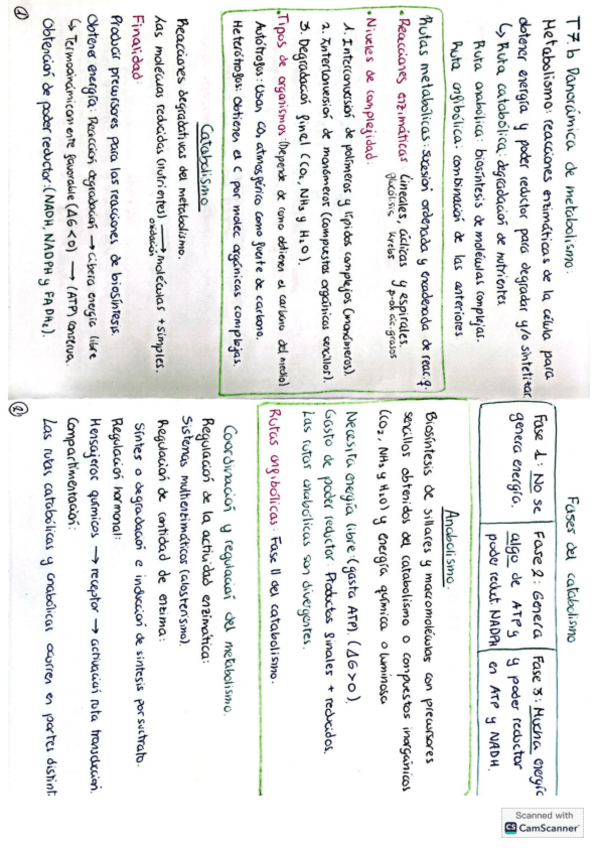 T7.b Panorámica de metabolismo:
Metabolismo: reacciones enzimáticas de la célula para
obtener energía y poder reductor para degradar y/o sintetizar
↳ Ruta catabólica: degradación de nutrientes
Ruta anabólica: biosíntesis de moléculas complejas.
Ruta anfibólica: combinación de las anteriores
Rutas metabólicas: sucesión ordenada y encadenada de reac q.
• Reacciones enzimáticas lineales, cíclicas y espirales.
glucólisis Krebs
• Niveles de complejidad:
1. Interconversión de polímeros y lípidos complejos (monómeros).
2. Interconversión de monómeros (compuestos orgánicos sencillos).
3. Degradación final (CO2, NH3 y H2O).
• Tipos de organismos: (Depende de como obtienen el carbono del medio)
Autótrofos: Usan CO2 atmosférico como fuente de carbono.
Heterótrofos: Obtienen el C por molec orgánicas complejas.
Catabolismo
Reacciones degradativas del metabolismo.
Las moléculas reducidas (nutrientes) → moléculas + simples.
oxidación
Finalidad:
Producir precursores para las reacciones de biosíntesis.
Obtener energía: Reacción degradación → Libera energía libre
↳ Termodinámicamente favorable (ΔG<0) → (ATP) conserva.
Obtención de poder reductor: (NADH, NADPH y FADH2).
1
Fases del catabolismo
Fase 1: No se
genera energía.
Fase 2: Genera
algo de ATP y
poder reduct. NADPH
Fase 3: Mucha energía
y poder reductor
en ATP y NADH.
Anabolismo.
Biosíntesis de sillares y macromoléculas con precursores
sencillos obtenidos del catabolismo o compuestos inorgánicos
(CO2, NH3 y H2O) y energía química o luminosa
Necesita energía libre: (gasta ATP). (ΔG>0).
Gasto de poder reductor: Productos finales + reducidos.
Las rutas anabólicas son divergentes.
Rutas anfibólicas: Fase II del catabolismo.
Coordinación y regulación del metabolismo.
Regulación de la actividad enzimática:
Sistemas multienzimáticos (alosterismo).
Regulación de cantidad de enzima:
Síntes o degradación e inducción de síntesis por sustrato.
Regulación hormonal:
Mensajeros químicos → receptor → activación ruta transducción.
Compartimentación:
Las rutas catabólicas y anabólicas ocurren en partes distint
2
Scanned with
CS CamScanner